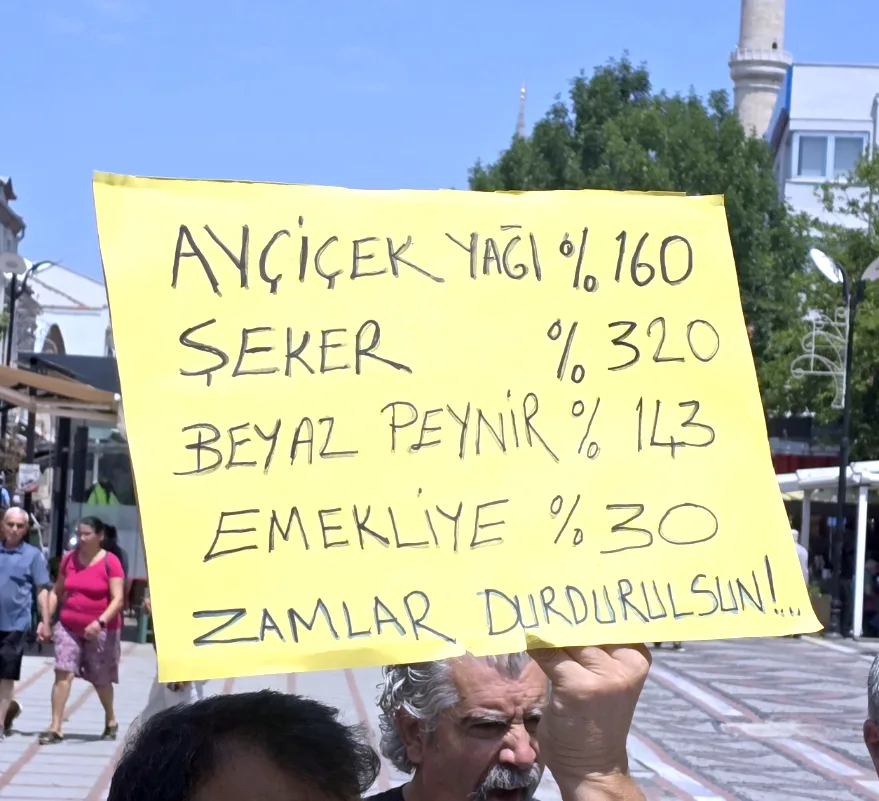 AYÇİÇEK YAĞI %160
ŞEKER %320
BEYAZ PEYNİR % 143
EMEKLİYE %30
ZAMLAR DURDURULSUN!...